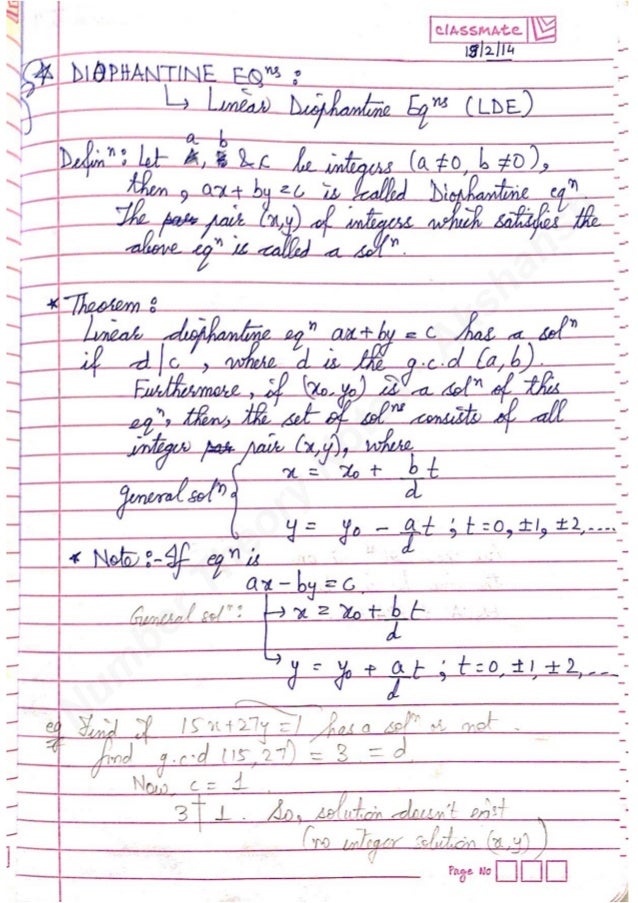 classmate
18/2/14
☆ DIOPHANTINE EQⁿˢ :
↳ Linear Diophantine Eqⁿˢ (LDE)
Definⁿ : Let a, b & c be integers (a ≠ 0, b ≠ 0),
then, ax + by = c is called Diophantine eqⁿ
The pair (x,y) of integers which satisfies the
above eqⁿ is called a solⁿ.
* Theorem :
Linear diophantine eqⁿ ax + by = c has a solⁿ
if d | c , where d is the g.c.d (a, b).
Furthermore, if (x₀, y₀) is a solⁿ of this
eqⁿ, then, the set of solⁿˢ consists of all
integer pair (x,y), where
general solⁿ { x = x₀ + b/d t
y = y₀ - a/d t ; t = 0, ±1, ±2, ....
* Note :- If eqⁿ is
ax - by = c
General solⁿ : → x = x₀ + b/d t
↳ y = y₀ + a/d t ; t = 0, ±1, ±2, ...
eg Find if 15x + 27y = 1 has a solⁿ or not.
find g.c.d (15, 27) = 3 = d
Now, c = 1
3 ∤ 1. So, solution doesn't exist
(no integer solution (x,y))
Page No